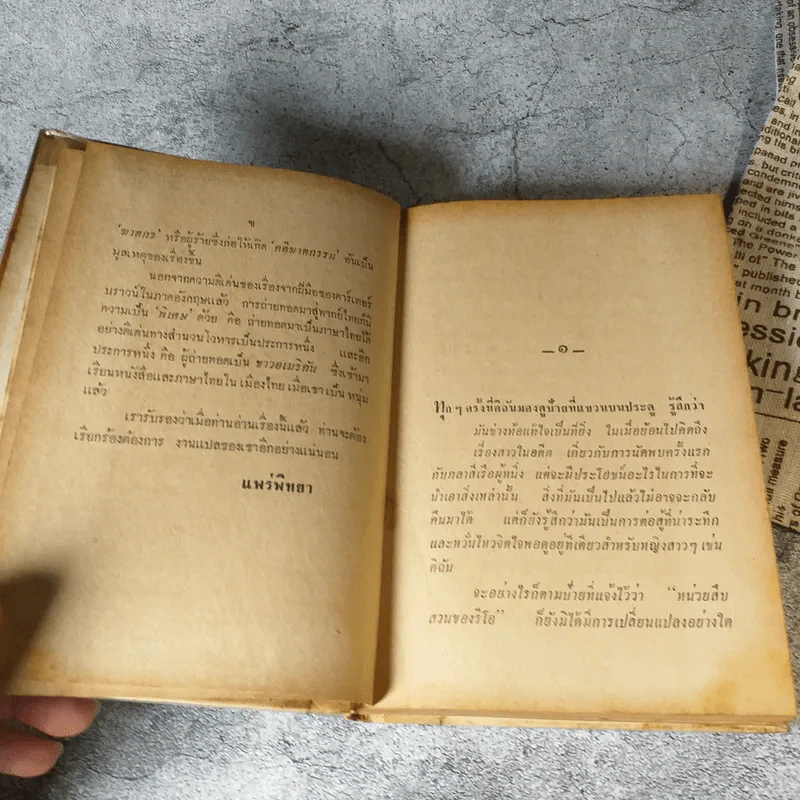 ข
‘ฆาตกร’ หรือผู้ร้ายซึ่งก่อให้เกิด ‘คดีฆาตกรรม’ อันเป็น
มูลเหตุของเรื่องขึ้น
นอกจากความดีเด่นของเรื่องจากฝีมือของคาร์เตอร์
บราวน์ในภาคอังกฤษแล้ว การถ่ายทอดมาสู่พากย์ไทยก็มี
ความเป็น ‘พิเศษ’ ด้วย คือ ถ่ายทอดมาเป็นภาษาไทยได้
อย่างดีเด่นทางสำนวนโวหารเป็นประการหนึ่ง และอีก
ประการหนึ่ง คือ ผู้ถ่ายทอดเป็น ชาวอเมริกัน ซึ่งเข้ามา
เรียนหนังสือและภาษาไทยใน เมืองไทย เมื่อเขา เป็น หนุ่ม
แล้ว
เรารับรองว่าเมื่อท่านอ่านเรื่องนี้แล้ว ท่านจะต้อง
เรียกร้องต้องการ งานแปลของเขาอีกอย่างแน่นอน
แพร่พิทยา
—๑—
ทุก ๆ ครั้งที่ดิฉันมองดูป้ายที่แขวนบนประตู รู้สึกว่า
มันช่างท้อแท้ใจเป็นที่ยิ่ง ในเมื่อย้อนไปคิดถึง
เรื่องสาวในอดีต เกี่ยวกับการนัดพบครั้งแรก
กับกลาสีเรือผู้หนึ่ง แต่จะมีประโยชน์อะไรในการที่จะ
นำเอาสิ่งเหล่านั้น สิ่งที่มันเป็นไปแล้วไม่อาจจะกลับ
คืนมาได้ แต่ก็ยังรู้สึกว่ามันเป็นการต่อสู้ที่น่าระทึก
และหวั่นไหวจิตใจพอดูอยู่ทีเดียวสำหรับหญิงสาวๆ เช่น
ดิฉัน
จะอย่างไรก็ตามป้ายที่แจ้งไว้ว่า “หน่วยสืบ
สวนของรีโอ” ก็ยังมิได้มีการเปลี่ยนแปลงอย่างใด